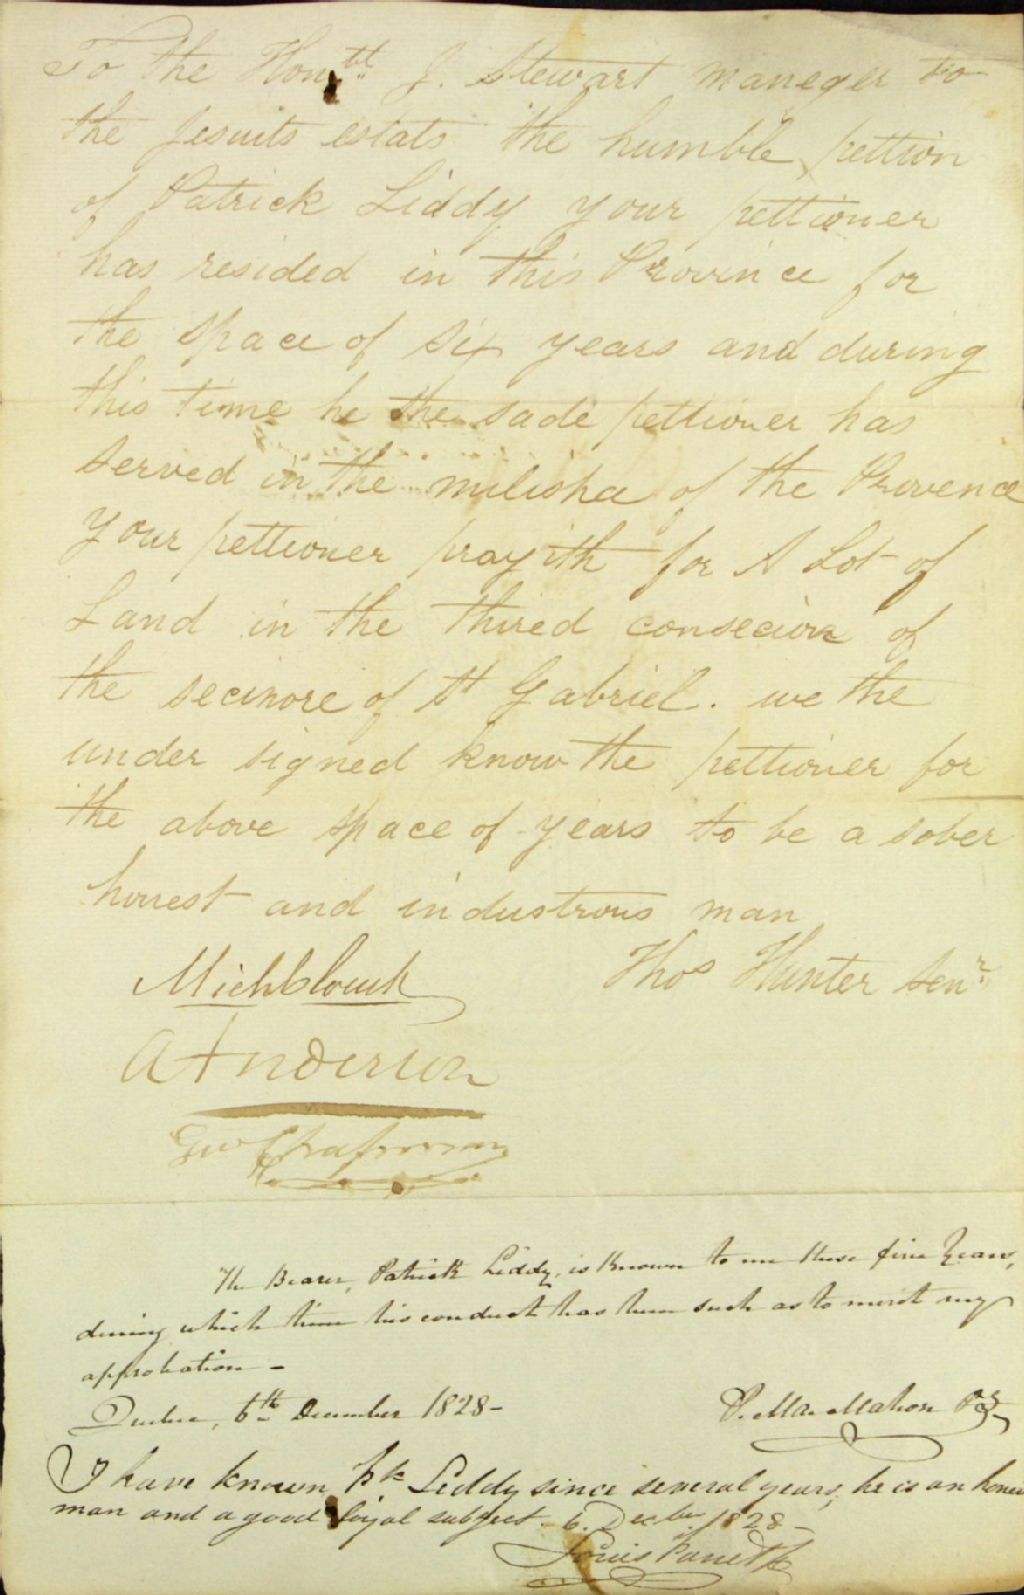 To the Honbl. J. Stewart maneger to
the Jesuits estats the humble pettion
of Patrick Liddy your pettioner
has resided in this Province for
the space of six years and during
this time he the sade pettioner has
served in the milisha of the Provence
your pettioner prayith for A Lot of
Land in the thired consecion of
the secinore of St Gabriel. we the
under signed know the pettioner for
the above space of years to be a sober
honest and industrous man
Thos Hunter Senr
A Anderson
Geo Chapman
The Bearer, Patrick Liddy, is known to me these five Years,
during which time his conduct has been such as to merit my
approbation -
Quebec, 6th December 1828-
P. MacMahon Pr
I have known Pk Liddy since several years, he is an honest
man and a good loyal subject - 6. Decber 1828-
Louis Panet